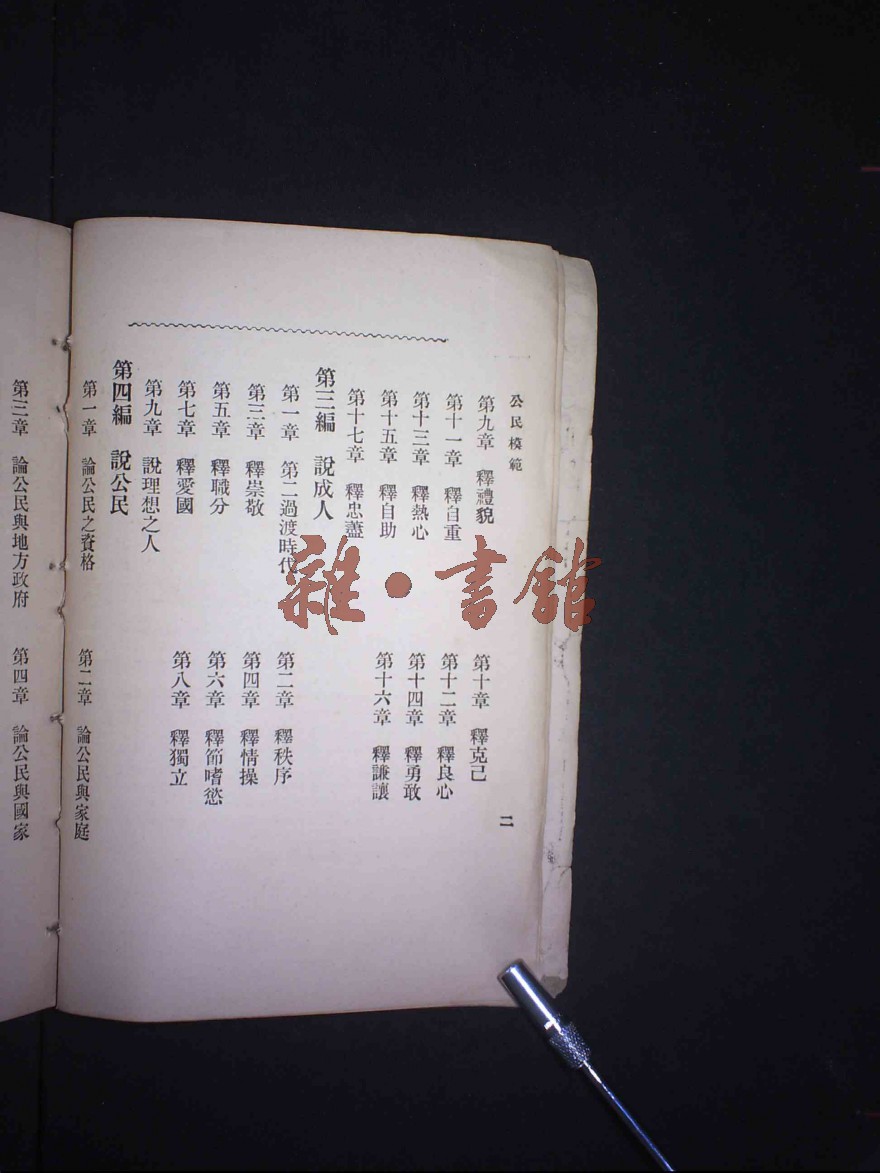 公民模範
第九章　釋禮貌　第十章　釋克己
第十一章　釋自重　第十二章　釋良心
第十三章　釋熱心　第十四章　釋勇敢
第十五章　釋自助　第十六章　釋謙讓
第十七章　釋忠藎
第三編　說成人
第一章　第二過渡時代　第二章　釋秩序
第三章　釋崇敬　第四章　釋情操
第五章　釋職分　第六章　釋節嗜慾
第七章　釋愛國　第八章　釋獨立
第九章　說理想之人
第四編　說公民
第一章　論公民之資格　第二章　論公民與家庭
二
第三章　論公民與地方政府　第四章　論公民與國家
雜·書館